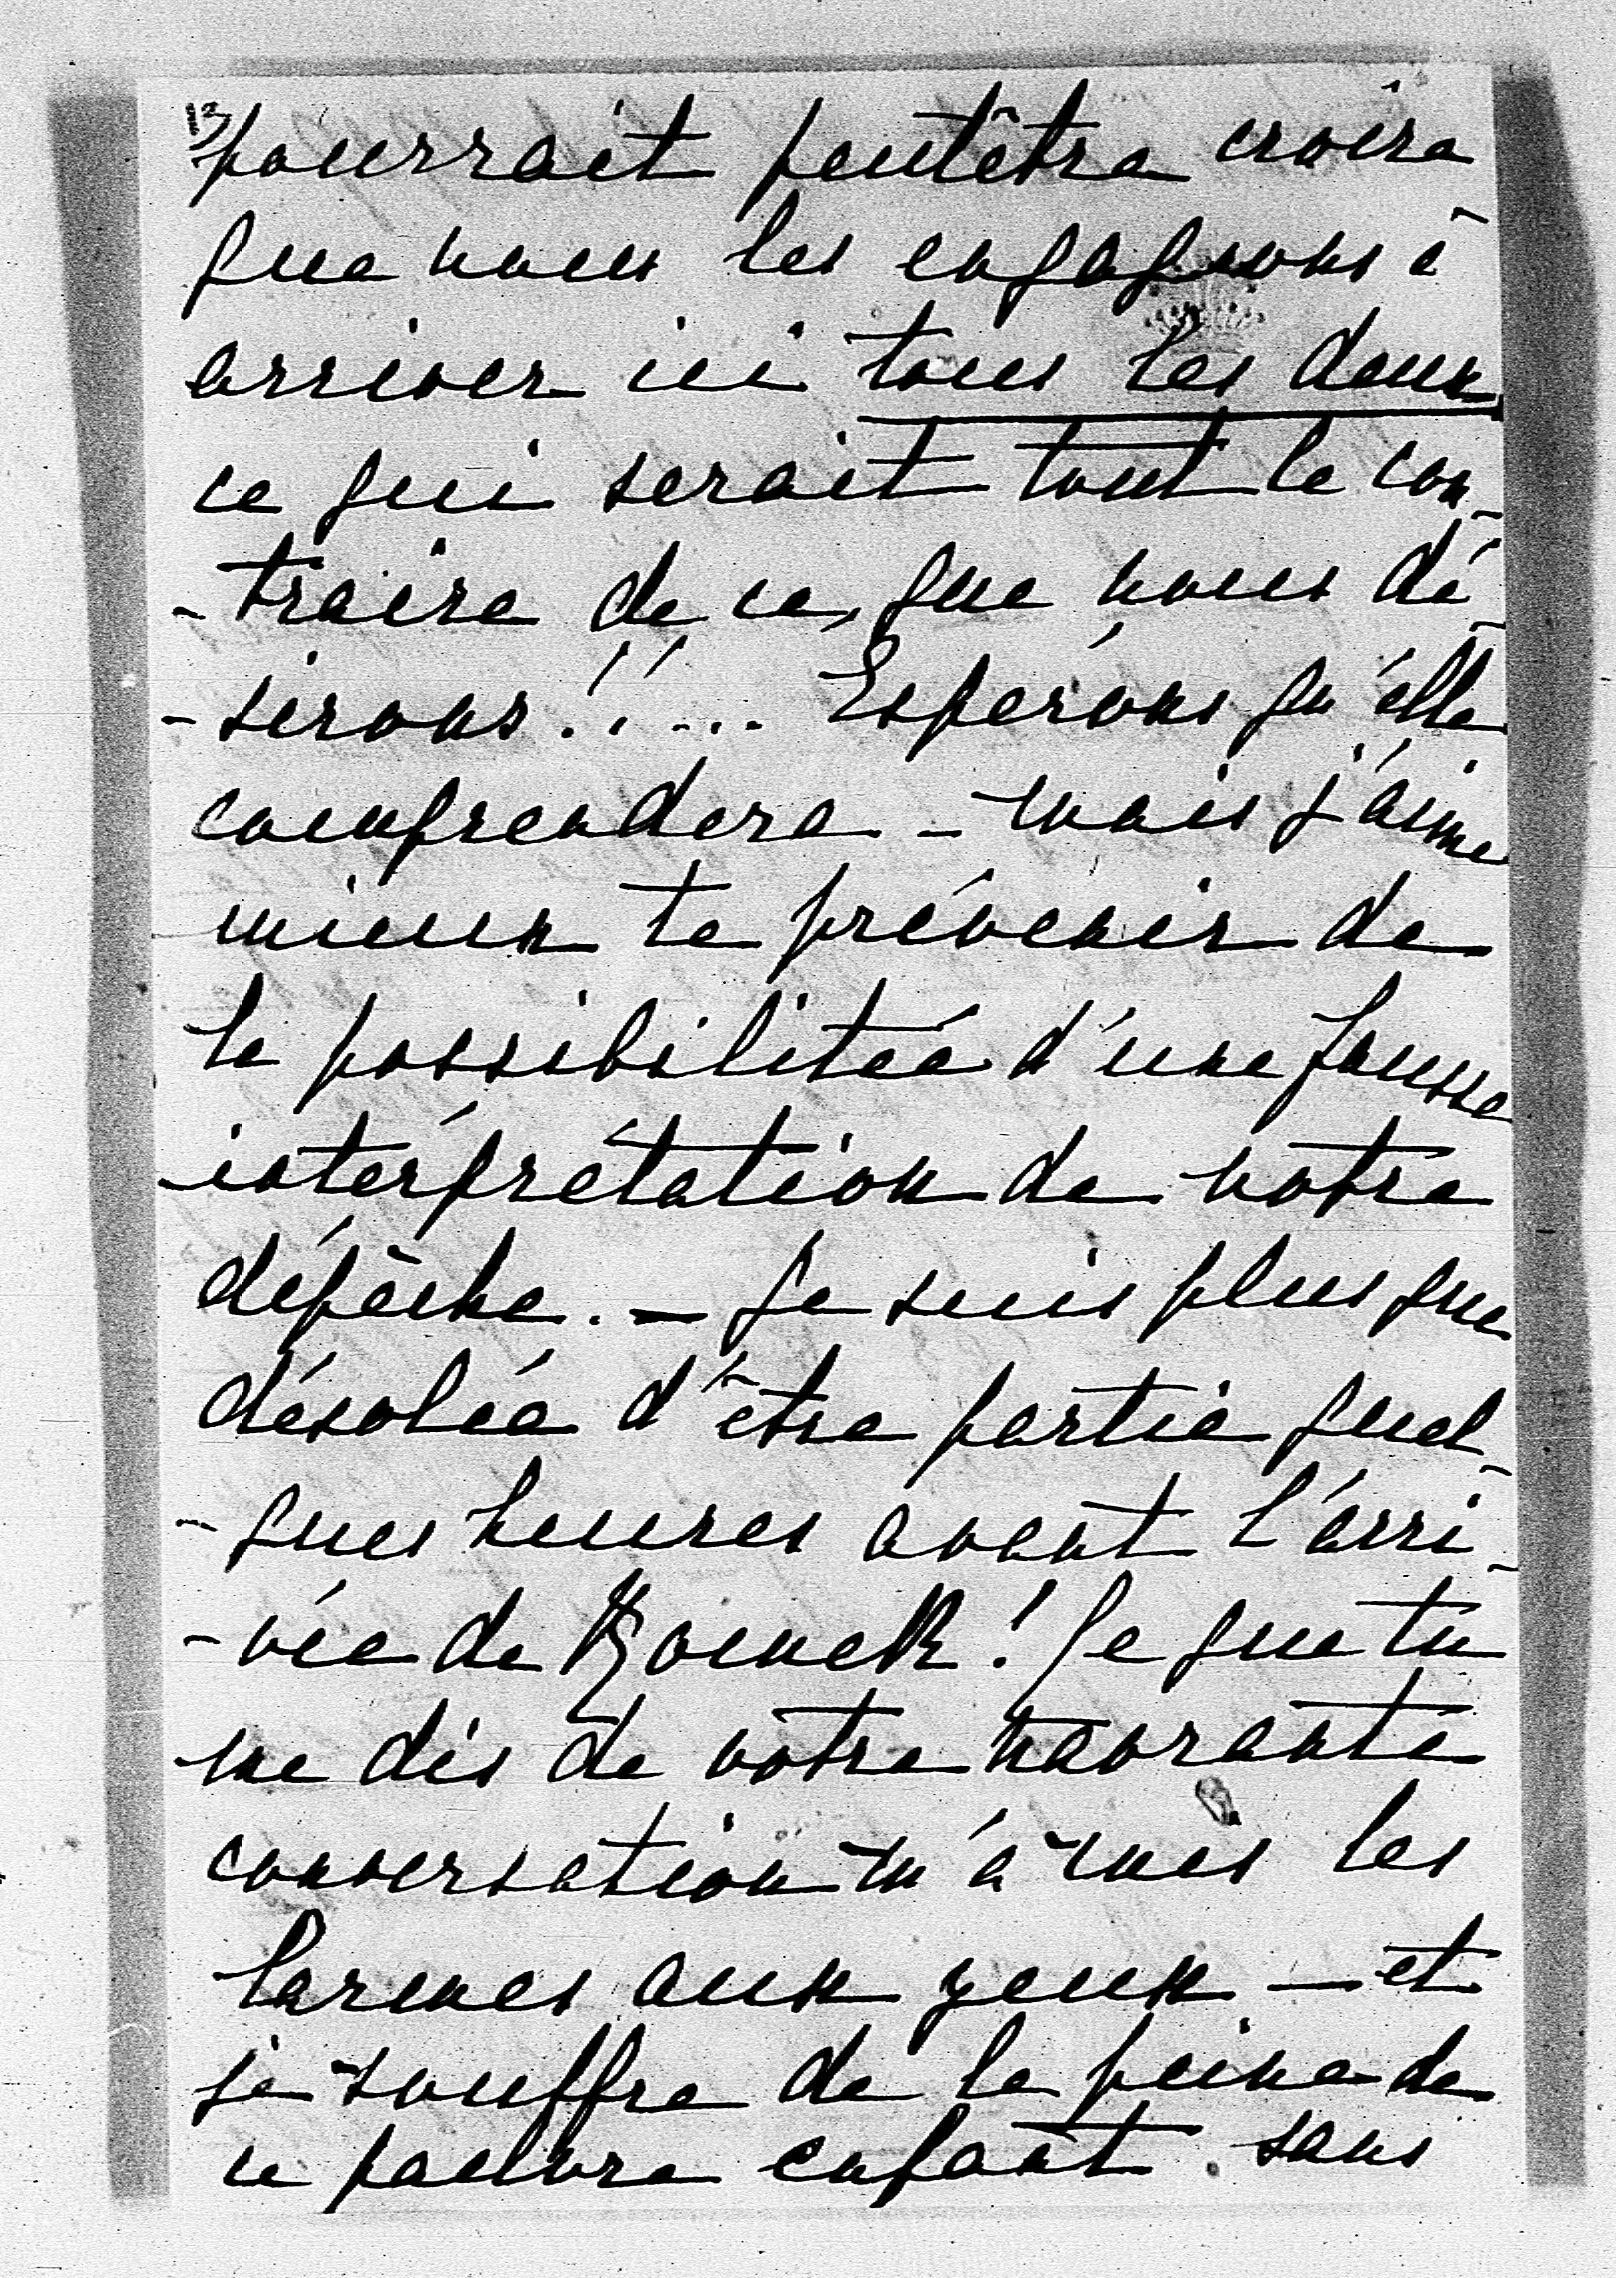 13 pourrait peutêtre croire
que nous les engageons à
arriver ici tous les deux,
ce qui serait tout le con-
-traire de ce, que nous dé-
-sirons!!... Espérons qu'elle
comprendera – mais j'aime
mieux te prévenir de
la possibilitée d'une fausse
interprétation de notre
dépêche. – Je suis plus que
désolée d'être partie quel-
-ques heures avant l'arri-
-vée de ! Ce que tu
me dis de votre navrante
conversation m'a mis les
larmes aux yeux – et
je souffre de la peine de
ce pauvre enfant. sans